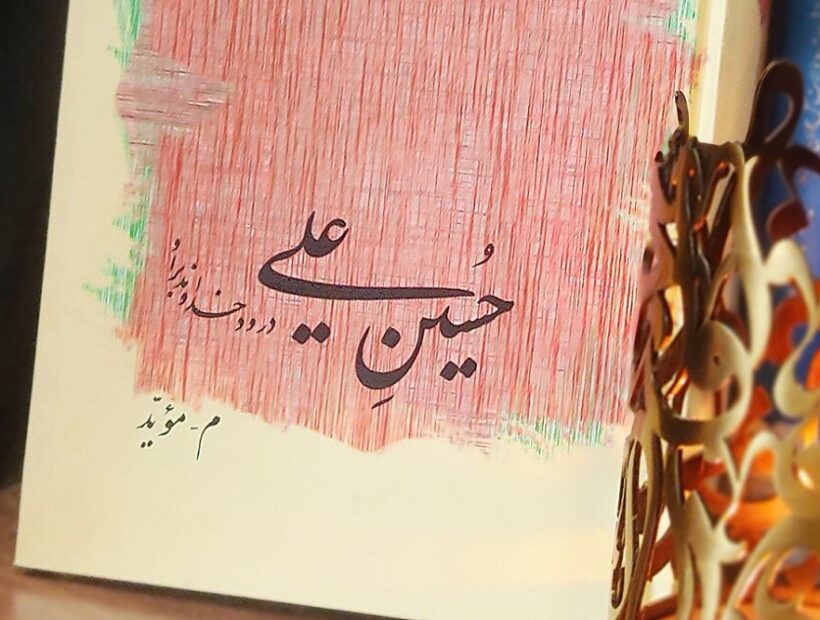 حُسینِ علی
درود خداوند بر اُو
م - مؤیّد